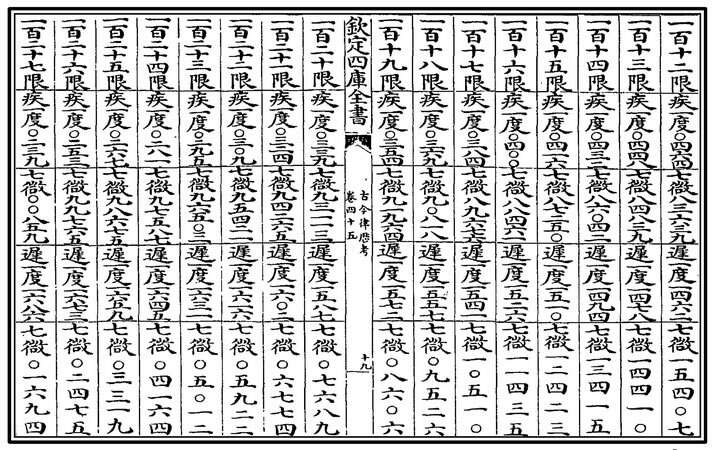 一百十二限疾一度○四六四七微八三六三九遲一度一四六二七微一五四○七
一百十三限疾一度○四四八七微八四八三九遲一度一四七八七微一四四一○
一百十四限疾一度○四三二七微八六○四二遲一度一四九四七微一三四一五
一百十五限疾一度○四一六七微八七二五○遲一度一五一○七微一二四二三
一百十六限疾一度○四○○七微八八四六遲一度一五二六七微一一四三五
一百十七限疾一度○三八四七微八九六七六遲一度一五四七微一○五一○
一百十八限疾一度○三六九七微九○八一八遲一度一五五七七微○九五二六
一百十九限疾一度○三五四七微九一九六四遲一度一五七二七微○八六○六
欽定四庫全書
古今律歷考
卷四十五
十九
一百二十限疾一度○三三九七微九三一一三遲一度一五八七七微○七六八九
一百二十一限疾一度○三二四七微九四二六五遲一度一六○二七微○六七七四
一百二十二限疾一度○三○九七微九五四二一遲一度一六一六七微○五九二二
一百二十三限疾一度○二九五七微九六五○三遲一度一六三一七微○五○一二
一百二十四限疾一度○二八一七微九七五八七遲一度一六四五七微○四一六四
一百二十五限疾一度○二六七七微九八六七五遲一度一六五九七微○三三一九
一百二十六限疾一度○二五三七微九九七六五遲一度一六七三七微○二四七五
一百二十七限疾一度○二三九七微○○八五九遲一度一六八六七微○一六九四